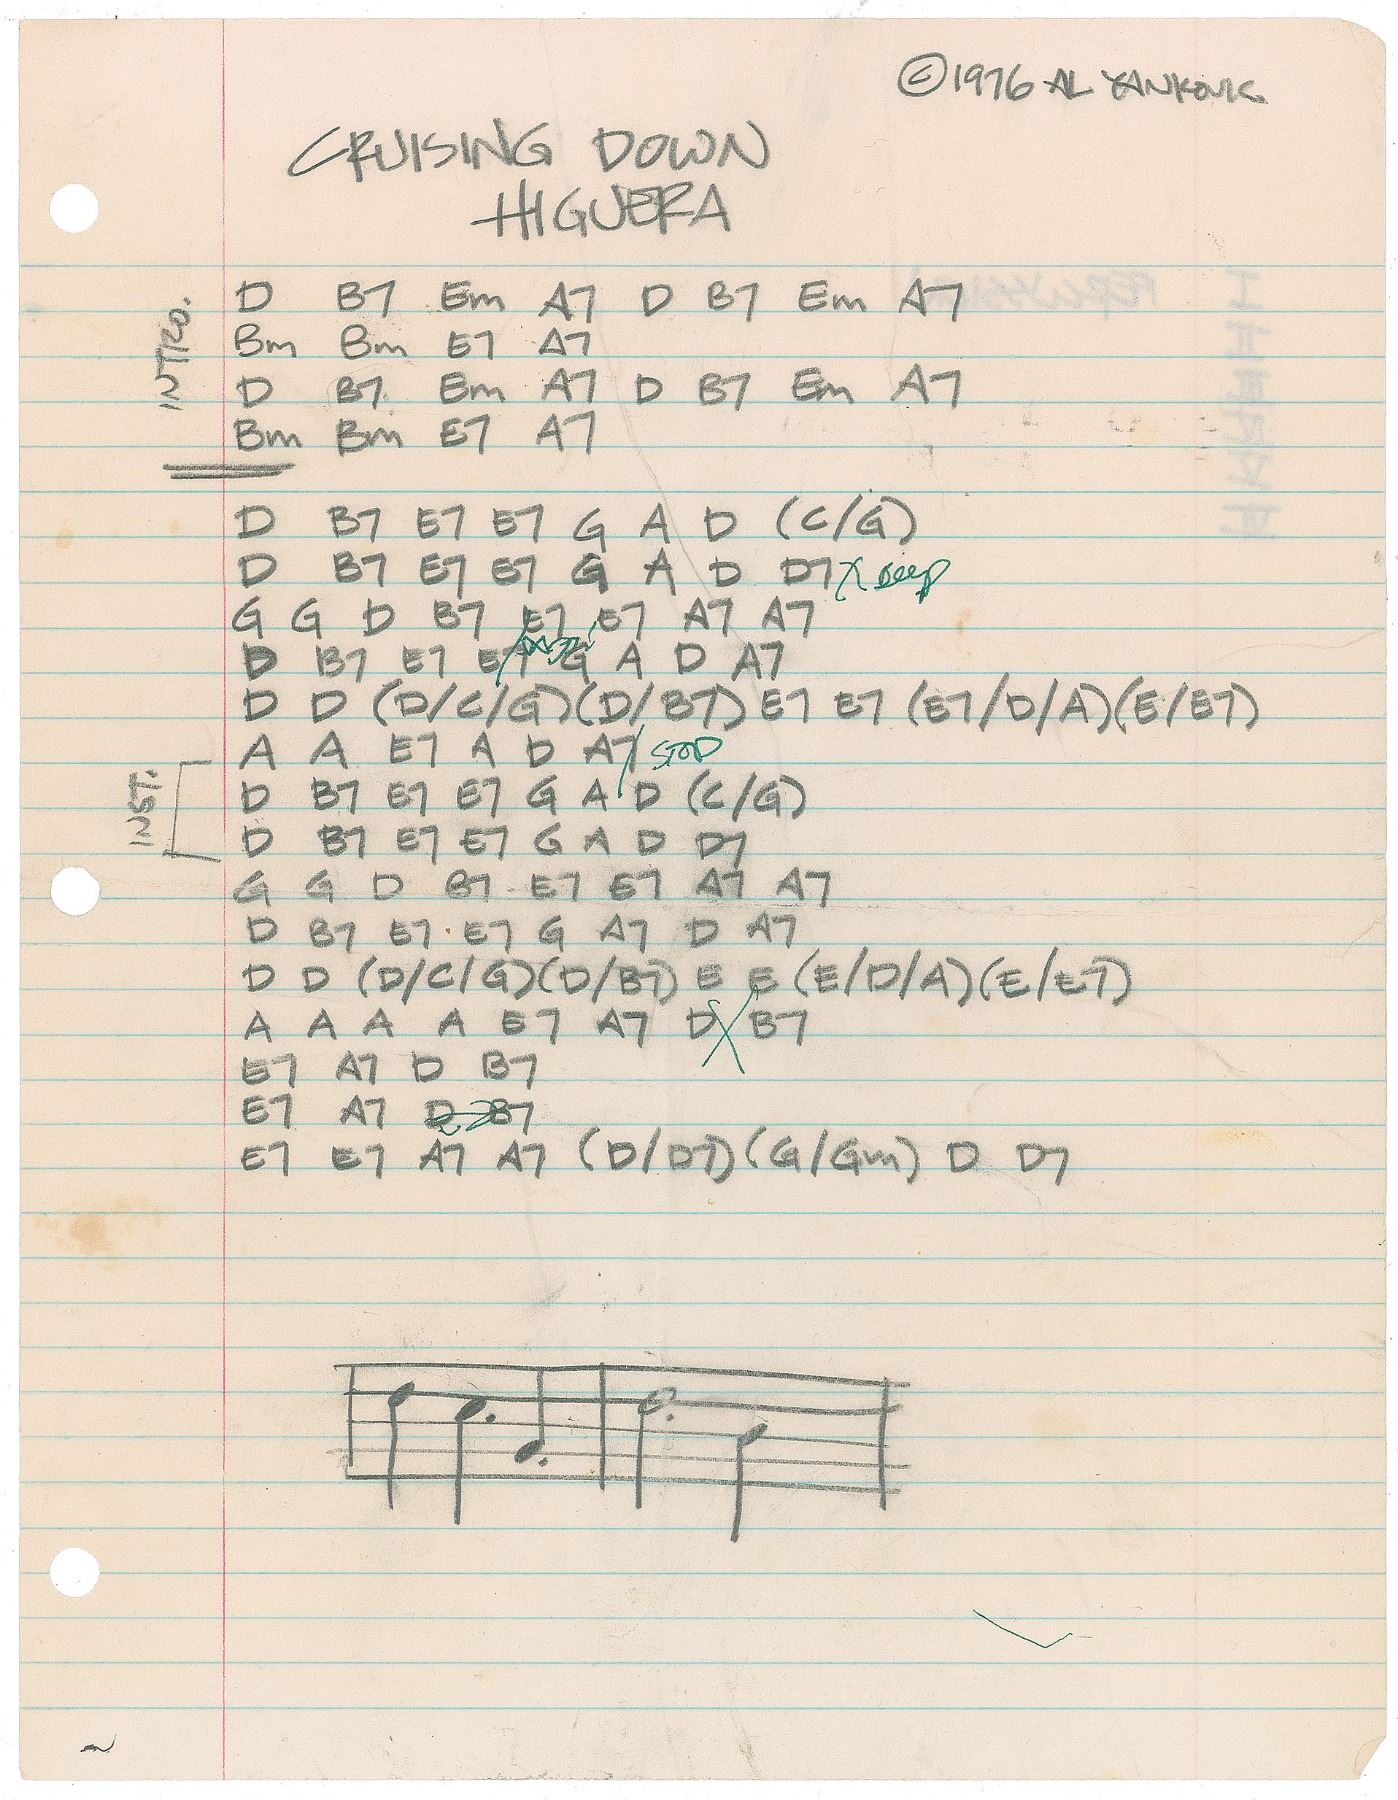 ©1976 AL YANKOVIC
CRUISING DOWN
HIGUERA
INTRO.
D B7 Em A7 D B7 Em A7
Bm Bm E7 A7
D B7 Em A7 D B7 Em A7
Bm Bm E7 A7
D B7 E7 E7 G A D (C/G)
D B7 E7 E7 G A D D7 X BEEP
G G D B7 E7 E7 A7 A7
D B7 E7 E7 G A D A7
D D (D/C/G)(D/B7) E7 E7 (E7/D/A)(E/E7)
A A E7 A D A7 / STOP
INST.
D B7 E7 E7 G A D (C/G)
D B7 E7 E7 G A D D7
G G D B7 E7 E7 A7 A7
D B7 E7 E7 G A7 D A7
D D (D/C/G)(D/B7) E E (E/D/A)(E/E7)
A A A A E7 A7 D X B7
E7 A7 D B7
E7 A7 D B7
E7 E7 A7 A7 (D/D7)(G/Gm) D D7